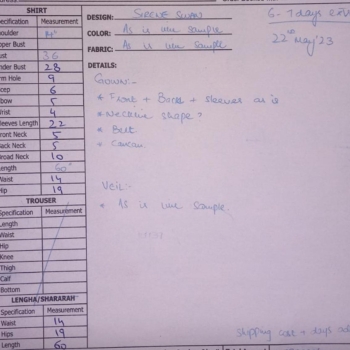 SHIRT
Specification Measurement
Shoulder 14"
Upper Bust
Bust 36
Under Bust 28
Arm Hole 9
Bicep 6
Elbow 5
Wrist 4
Sleeves Length 22
Front Neck 5
Back Neck 5
Broad Neck 10
Length 60"
Waist 14
Hip 19
TROUSER
Specification Measurement
Length
Waist
Hip
Knee
Thigh
Calf
Bottom
LENGHA/SHARARAH
Specification Measurement
Waist 14
Hips 19
Length 60
DESIGN:
COLOR: As is use sample
FABRIC: As is use sample
6-7 days
22nd May'23
DETAILS:
Gown:-
* Front + Back + sleeves as is
* Neckline shape?
* Belt
+ Cancan
Veil:-
* As is use sample
shipping cost + days